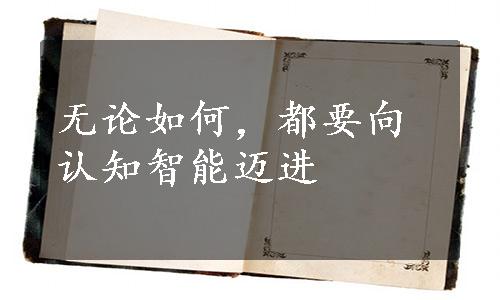 无论如何，都要向
认知智能迈进